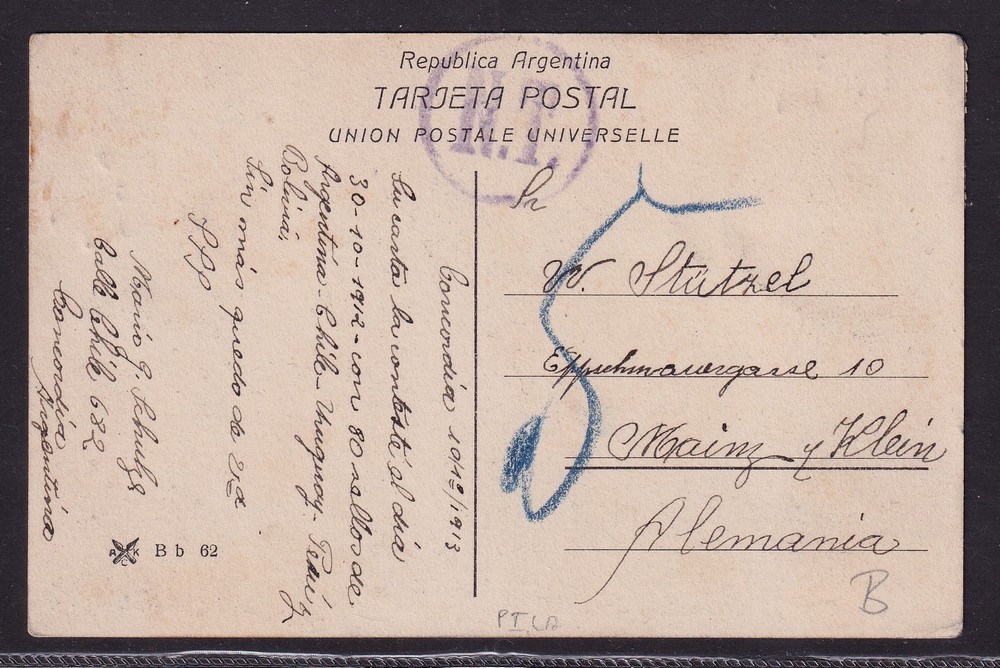 Republica Argentina
TARJETA POSTAL
UNION POSTALE UNIVERSELLE
N.T.
Concordia 1913
Su carta la contesté al día
30-10-1912 - con 80 sellos de
Argentina - Chile - Uruguay - Perú y
Bolivia.
Sin más quedo de Ud
SSS
Mario G. Schulze
Calle Chile 682
Concordia
Argentina
B b 62
Sr
W. Stützel
10
Mainz y Klein
Alemania
5
B